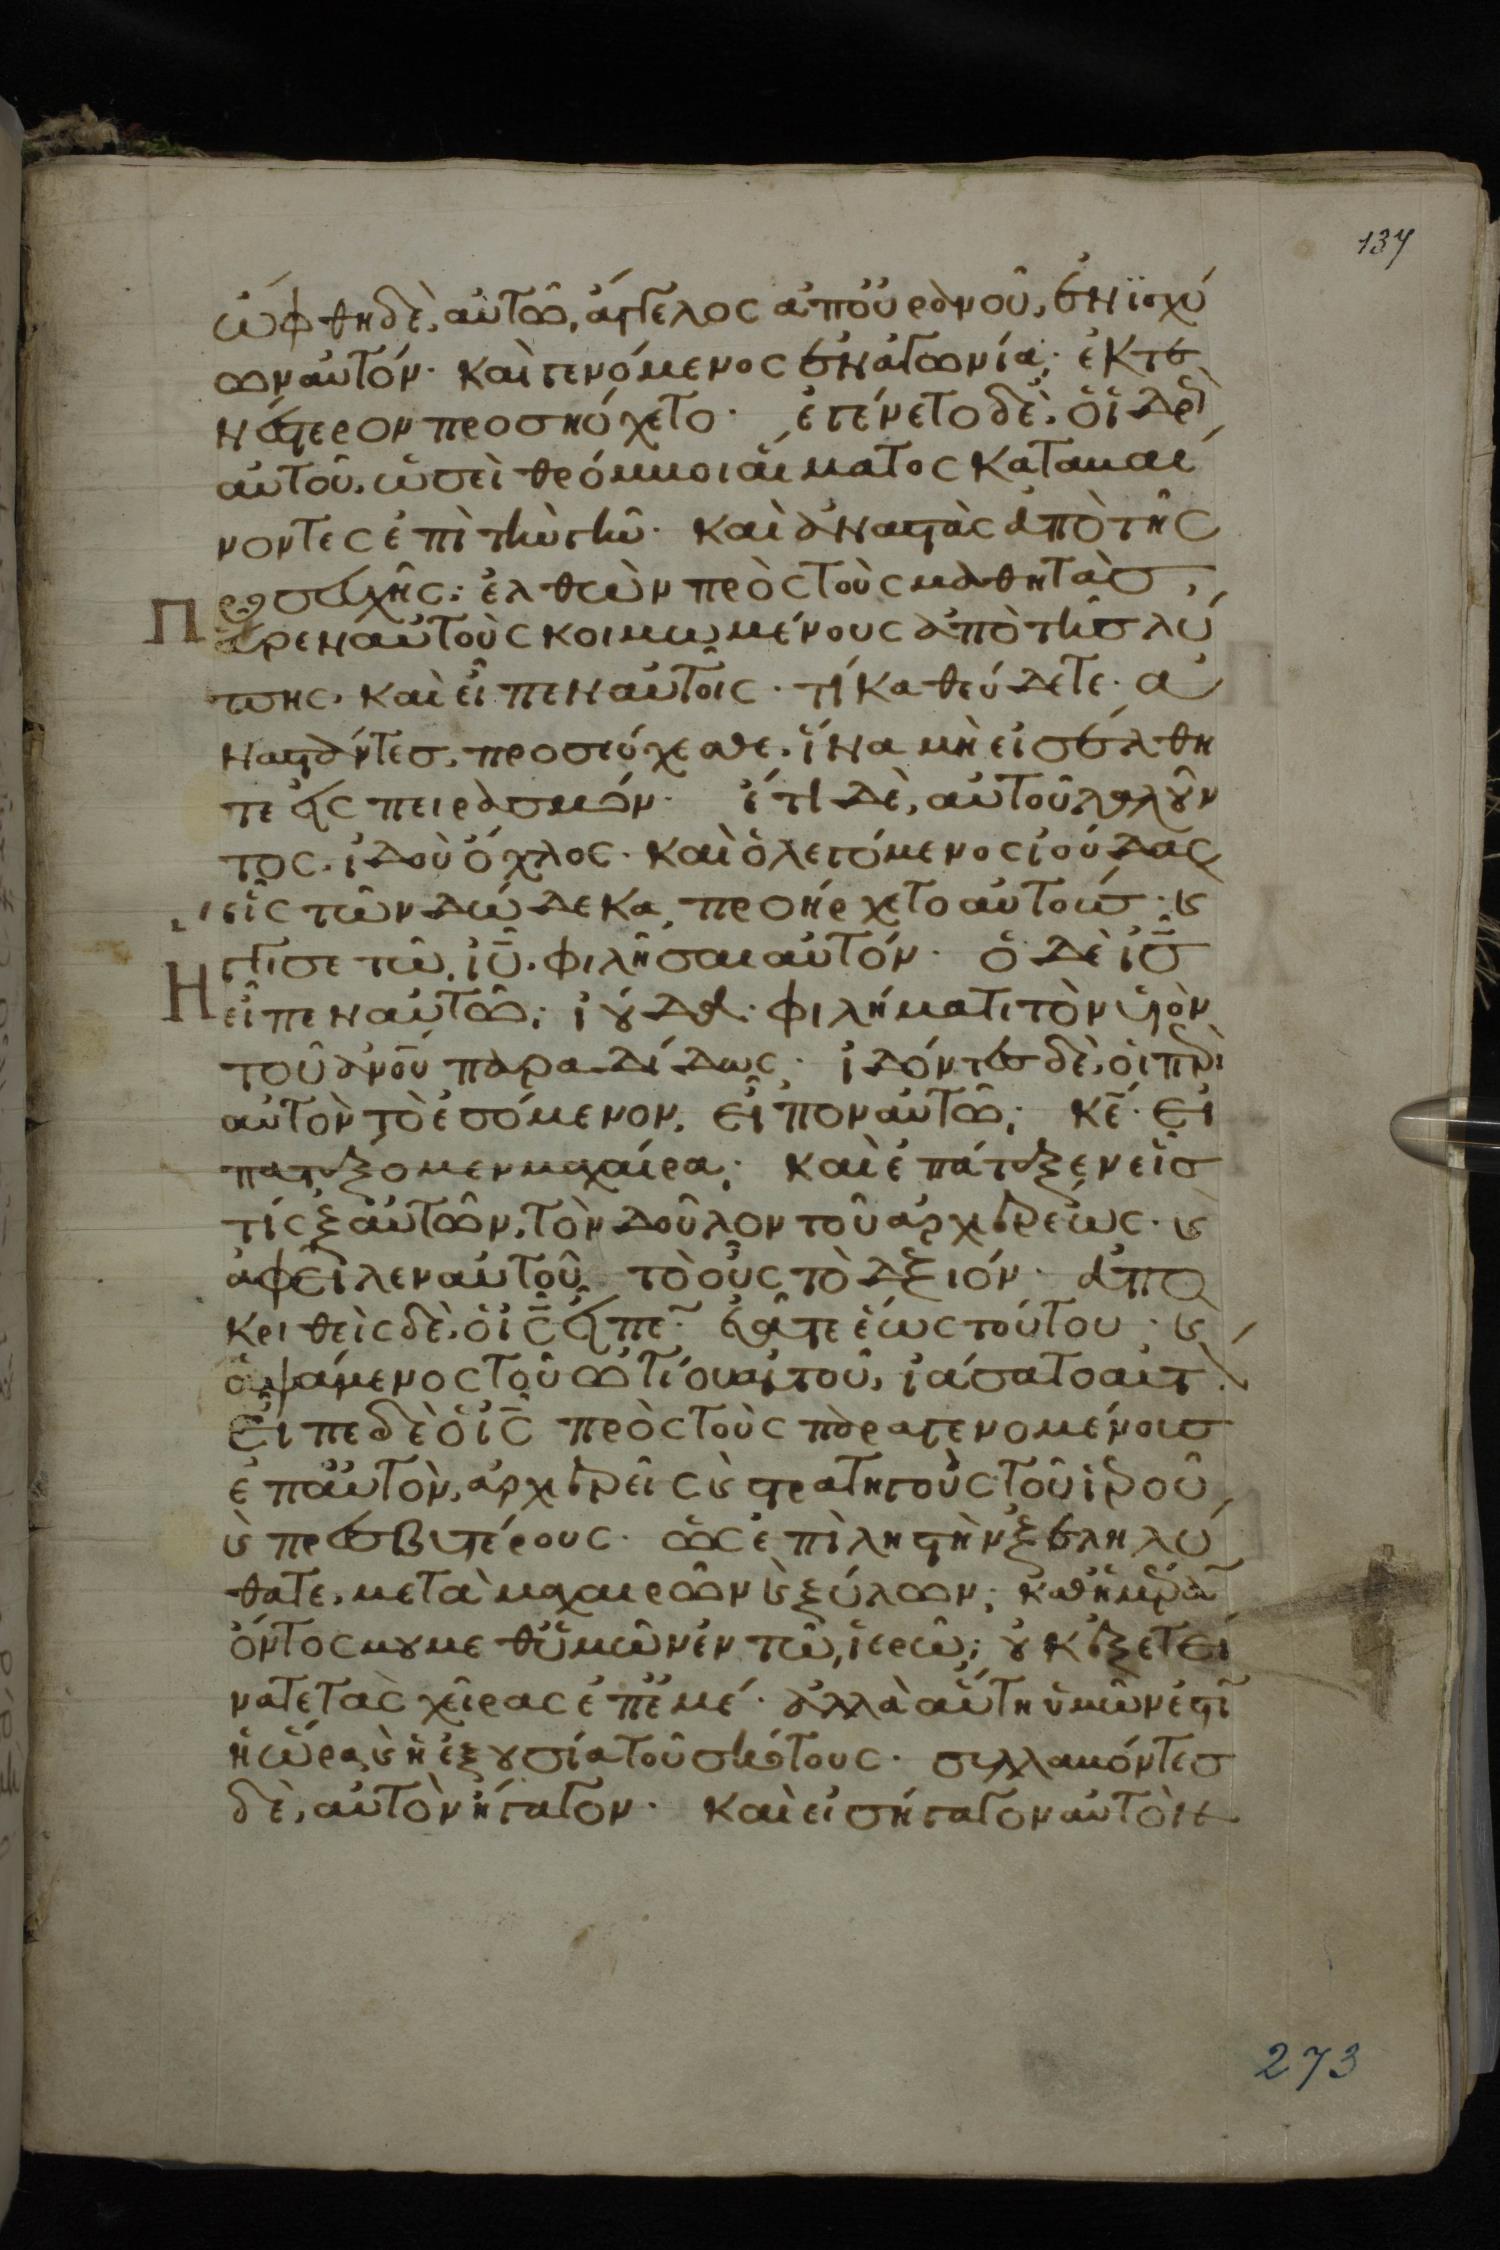 137
ὤφθη δὲ, αὐτῶ, ἄγγελος ἀπ' οὐρανοῦ, ἐνϊσχύ
ων αὐτόν· καὶ γενόμενος ἐν ἀγωνία· ἐκτε
νέστερον προσηύχετο· ἐγένετο δὲ ὁ ἱδρὼ
αὐτοῦ, ὡσεὶ θρόμβοι αἵματος καταβαί
νοντες ἐπὶ τὴν γῆν· καὶ ἀναστὰς ἀπὸ τῆς
Προσευχῆς· ἐλθὼν πρὸς τοὺς μαθητὰς,
εὗρεν αὐτοὺς κοιμωμένους ἀπὸ τῆς λύ
πης· καὶ εἶπεν αὐτοῖς· τί καθεύδετε· ἀ
ναστάντες, προσεύχεσθε· ἵνα μὴ εἰσέλθη
τε εἰς πειρασμόν· ἔτι δὲ, αὐτοῦ λαλοῦν
τος· ἰδοὺ ὄχλος· καὶ ὁ λεγόμενος ἰούδας
εἷς τῶν δώδεκα, προήρχετο αὐτοὺς· κ
Ηγγισε τῶ ἰῦ· φιλῆσαι αὐτόν· ὁ δὲ ἰς
εἶπεν αὐτῶ; ἰούδα· φιλήματι τὸν υἱὸν
τοῦ ἀνοῦ παραδίδως· ἰδόντες δὲ, οἱ περὶ
αὐτὸν τὸ ἐσόμενον, εἶπον αὐτῶ; κε· εἰ
πατάξομεν μαχαίρα; καὶ ἐπάταξεν εἷς
τίς ἐξ αὐτῶν, τὸν δοῦλον τοῦ ἀρχιερέως· κ
ἀφεῖλεν αὐτοῦ τὸ οὖς τὸ δεξιόν· ἀπο
κριθεὶς δὲ ὁ ἰς εἶπε· ἐᾶτε ἕως τούτου· κ
ἁψάμενος τοῦ ὠτίου αὐτοῦ, ἰάσατο αὐτ
Εἶπε δὲ ὁ ἰς πρὸς τοὺς παραγενομένους
ἐπ' αὐτὸν, ἀρχιερεῖς κ στρατηγοὺς τοῦ ἱεροῦ,
κ πρεσβυτέρους· ὡς ἐπὶ ληστὴν ἐξεληλύ
θατε, μετὰ μαχαιρῶν κ ξύλων; καθ' ἡμέραν
ὄντος μου μεθ' ὑμῶν ἐν τῶ, ἱερῶ; οὐκ ἐξετεί
νατε τὰς χεῖρας ἐπ' ἐμέ· ἀλλὰ αὕτη ὑμῶν ἐστῖ
ἡ ὥρα, κ ἡ ἐξουσία τοῦ σκότους· συλλαβόντες
δὲ, αὐτὸν ἤγαγον· καὶ εἰσήγαγον αὐτὸν
273